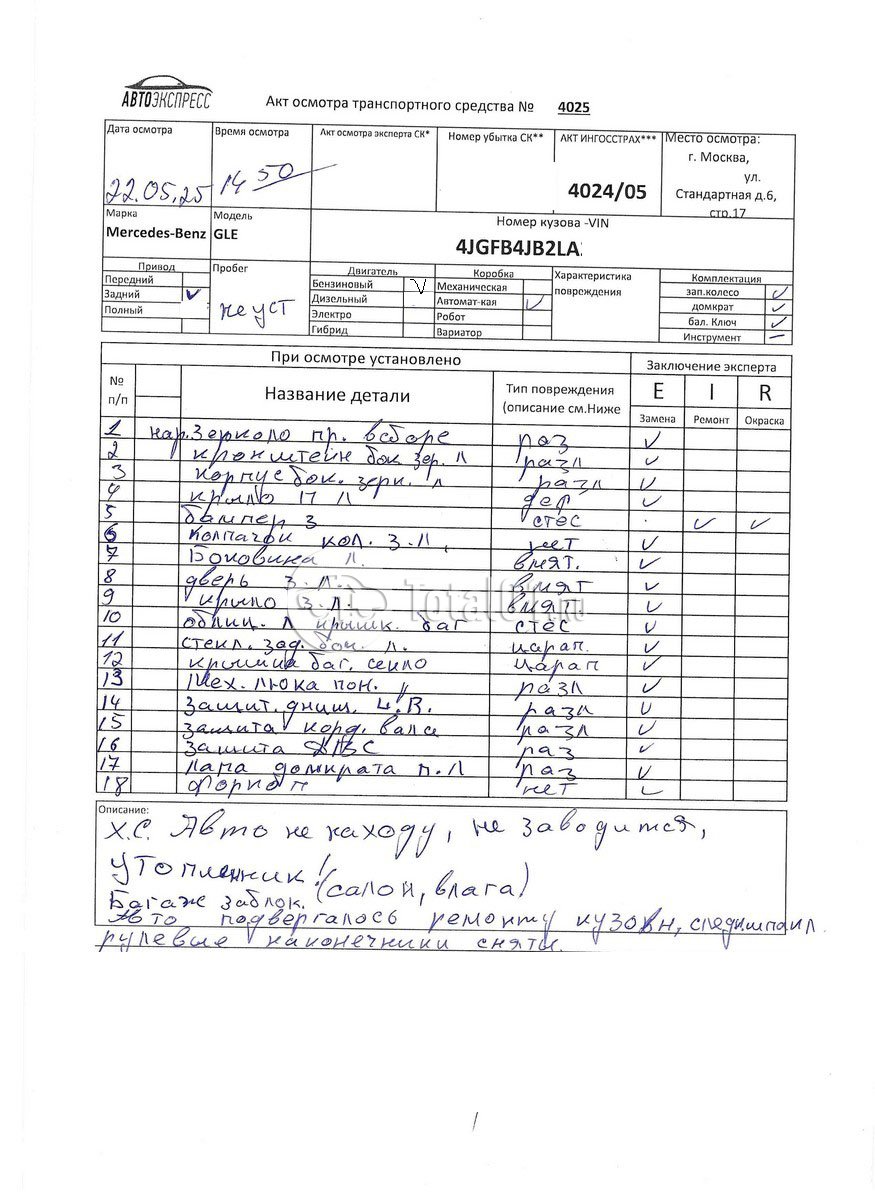 АВТОЭКСПРЕСС
Акт осмотра транспортного средства № 4025
Дата осмотра Время осмотра Акт осмотра эксперта СК* Номер убытка СК** АКТ ИНГОССТРАХ*** Место осмотра:
г. Москва,
ул.
22.05.25 14 50 4024/05 Стандартная д.6,
стр.17
Марка Модель Номер кузова -VIN
Mercedes-Benz GLE 4JGFB4JB2LA
Привод Пробег Двигатель Коробка Характеристика повреждения Комплектация
Передний Бензиновый V Механическая зап.колесо ✓
Задний ✓ не уст Дизельный Автомат-кая ✓ домкрат ✓
Полный Электро Робот бал. Ключ ✓
Гибрид Вариатор Инструмент –
При осмотре установлено Заключение эксперта
№ п/п Название детали Тип повреждения (описание см.Ниже E I R
Замена Ремонт Окраска
1 нар.зеркало пр. в сборе раз ✓
2 кронштейн бок. зер. л разл ✓
3 корпус бок. зерк. л разл ✓
4 крыло П Л деф ✓
5 бампер З стес ✓ ✓
6 колпачок кол. З.Л, нет ✓
7 Боковина л. вмят. ✓
8 дверь З.Л. вмят ✓
9 крыло З.Л. вмят ✓
10 облиц. л крышк. баг стес ✓
11 стекл. зад. бок. л. царап. ✓
12 крышка баг. секло царап ✓
13 Мех. люка пон. разл ✓
14 защит. днищ. ч.В. разл ✓
15 защита кард. вала разл ✓
16 защита ДВС раз ✓
17 лапа домкрата п.Л раз ✓
18 нет ✓
Описание:
Х.С. Авто не на ходу, не заводится,
Утопленник! (салон, влага)
Багаж заблок.
Авто подвергалось ремонту кузовн,
рулевые наконечники сняты.
Total01.ru